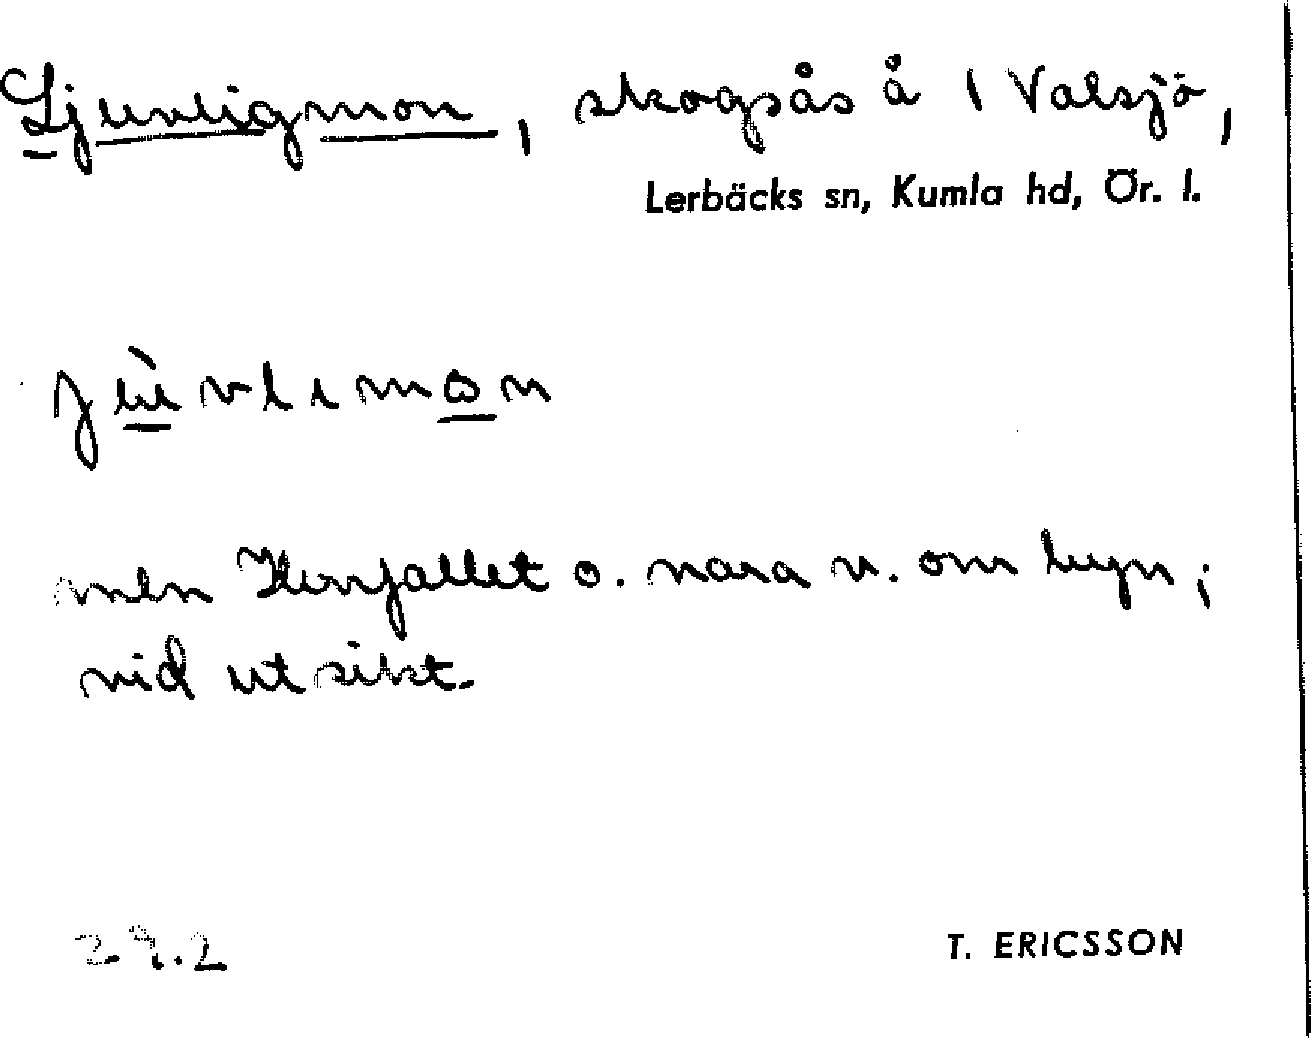 Ljuvligmon, skogsås å 1 Valsjö,
Lerbäcks sn, Kumla hd, Ör. l.
jùvlimon
o. nära n. om byn;
vid utsikt.
29.2
T. ERICSSON